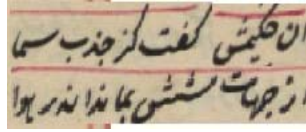 ان حکیمش گفت کز جذب سما
از جهات شش بماند اندر هوا